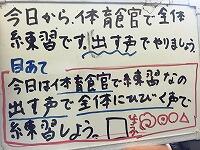 今日から、体育官で全体
練習です。出す声でやりましょう
目あて
今日は体育官で練習なの
出す声で全体にひびく声で
練習しよう。